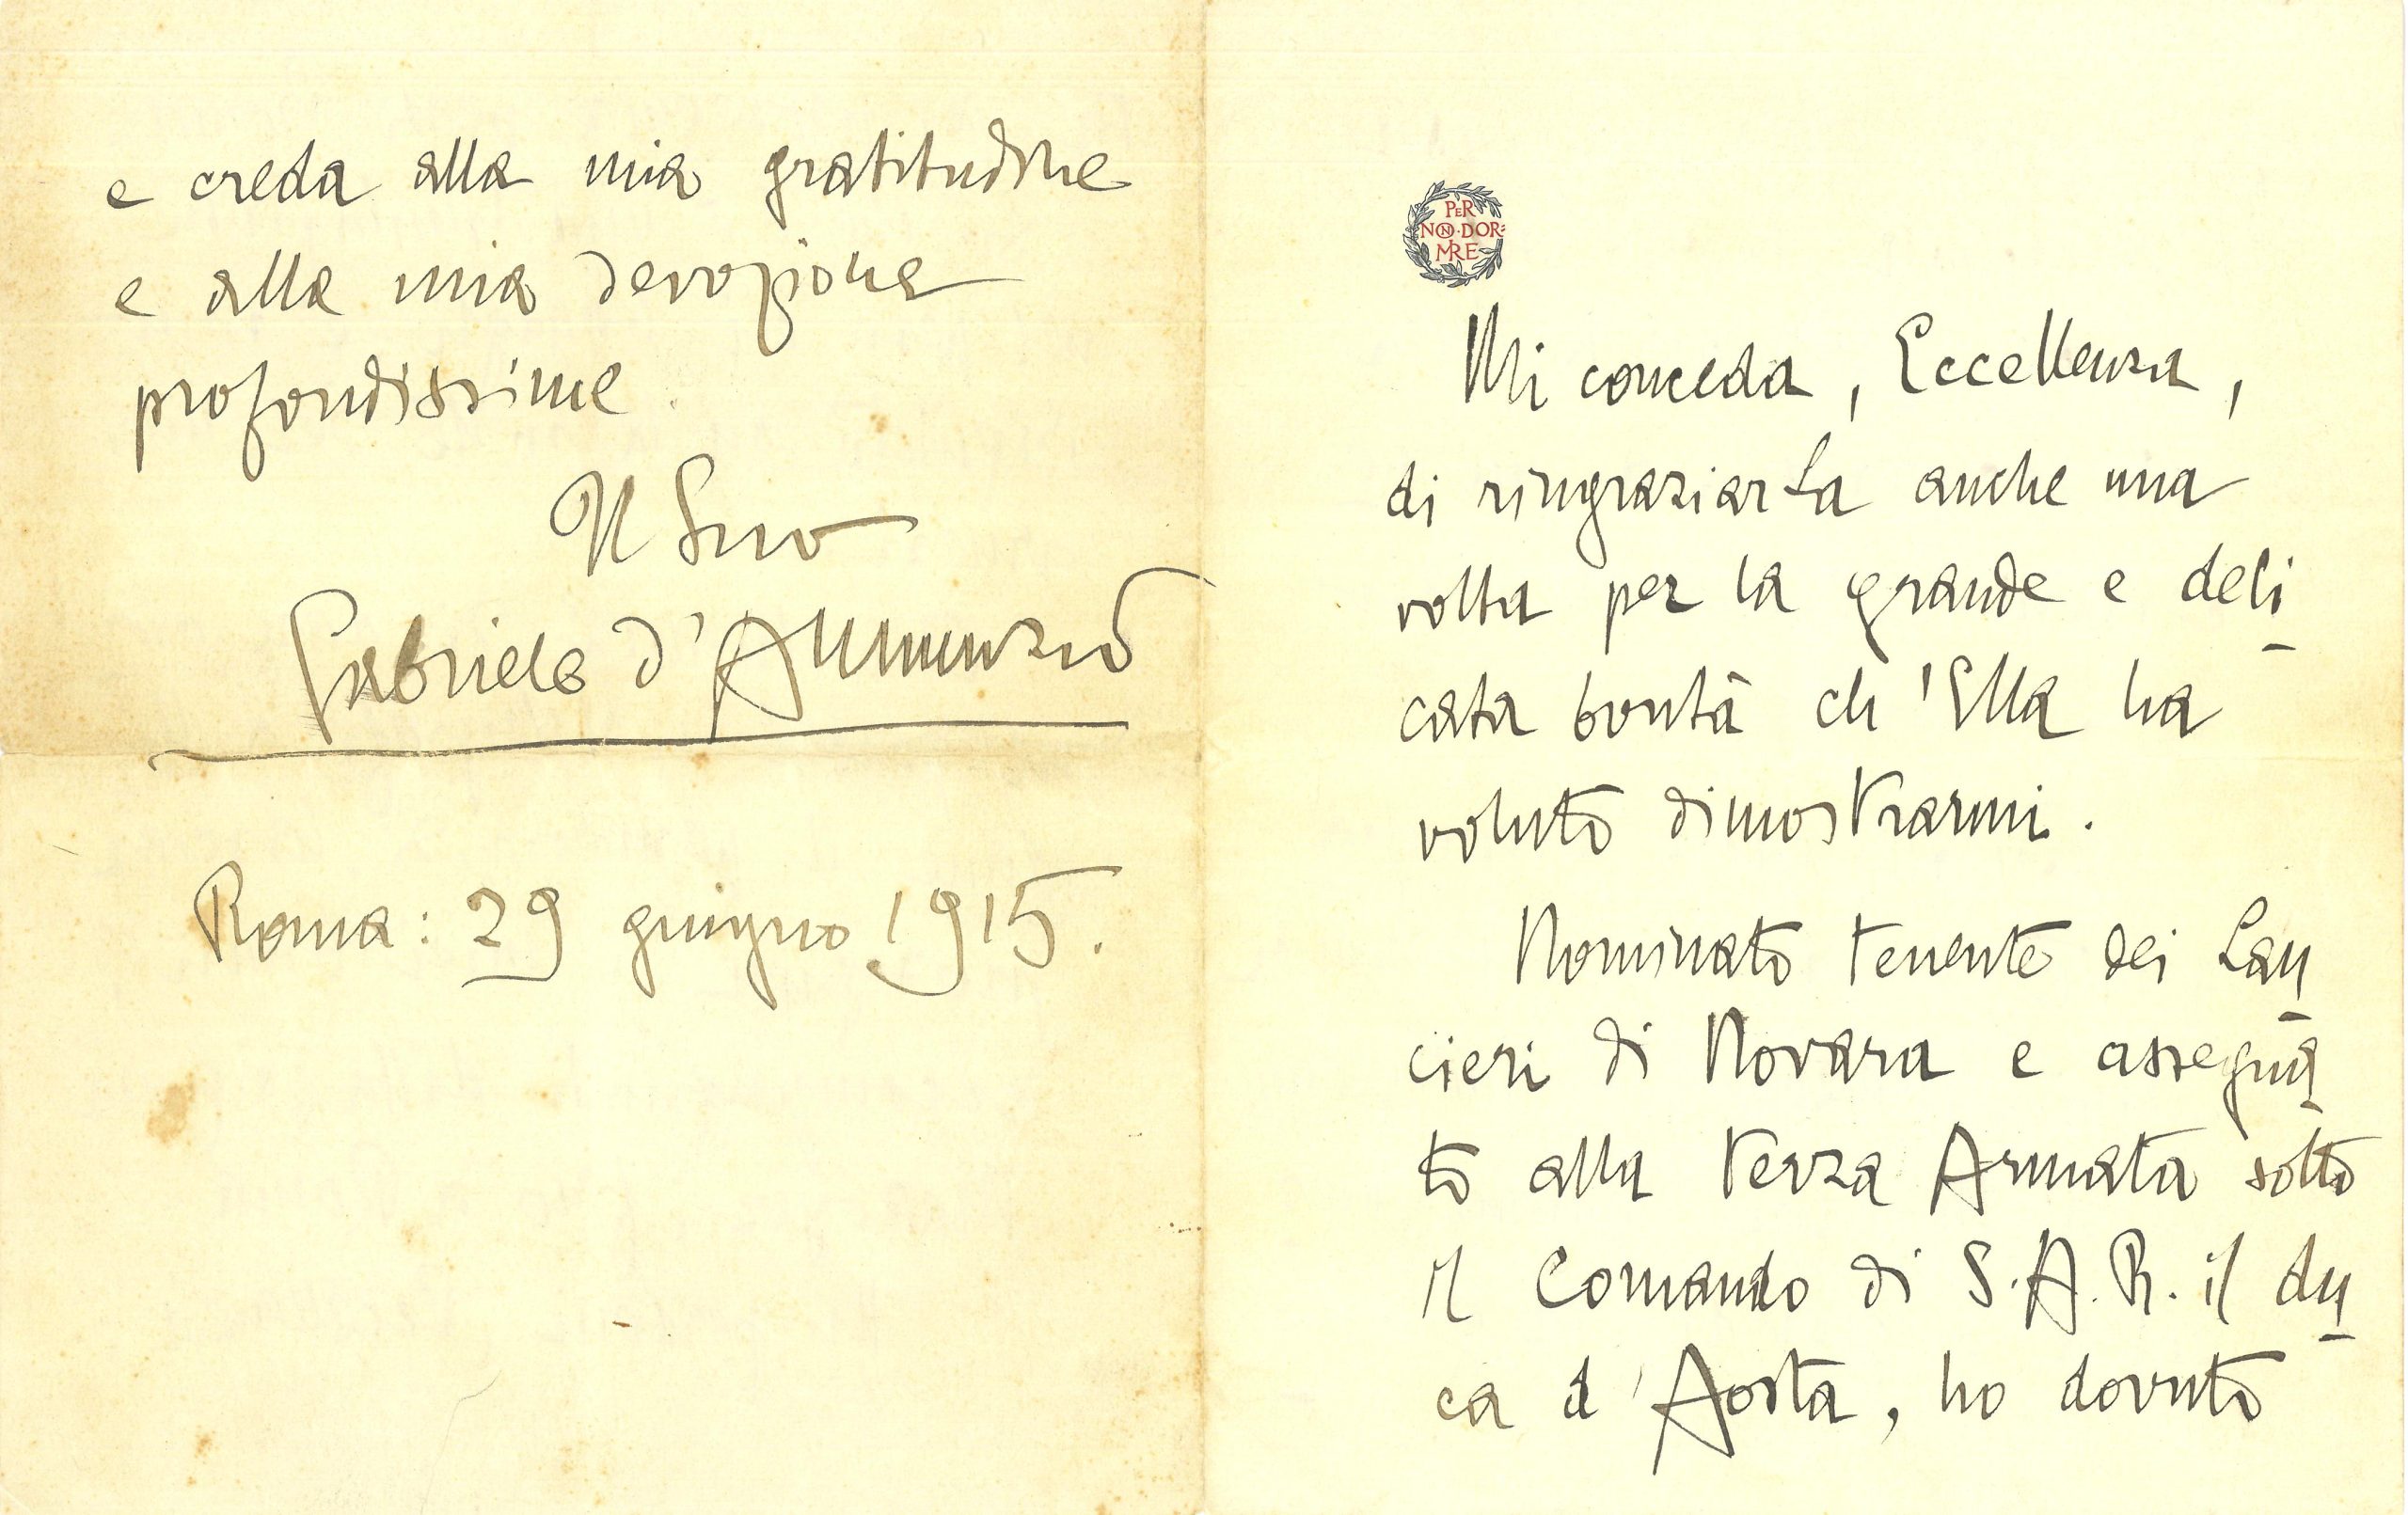 PER
NON·DOR=
MIRE
Mi conceda, Eccellenza,
di ringraziarLa anche una
volta per la grande e deli-
cata bontà ch'Ella ha
voluto dimostrarmi.
Nominato tenente dei Lan-
cieri di Novara e assegna-
to alla terza Armata sotto
il Comando di S.A.R. il du-
ca d'Aosta, ho dovuto
e creda alla mia gratitudine
e alla mia devozione
profondissime.
Il Suo
Gabriele d'Annunzio
Roma: 29 giugno 1915.